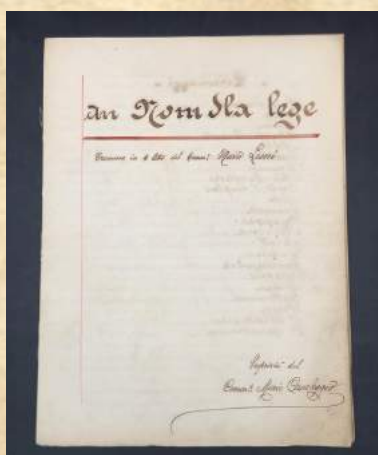 An Nom dla lege
Dramma in 4 Atti del Comm: Mario Leoni
Proprietà del
Comm: Mario